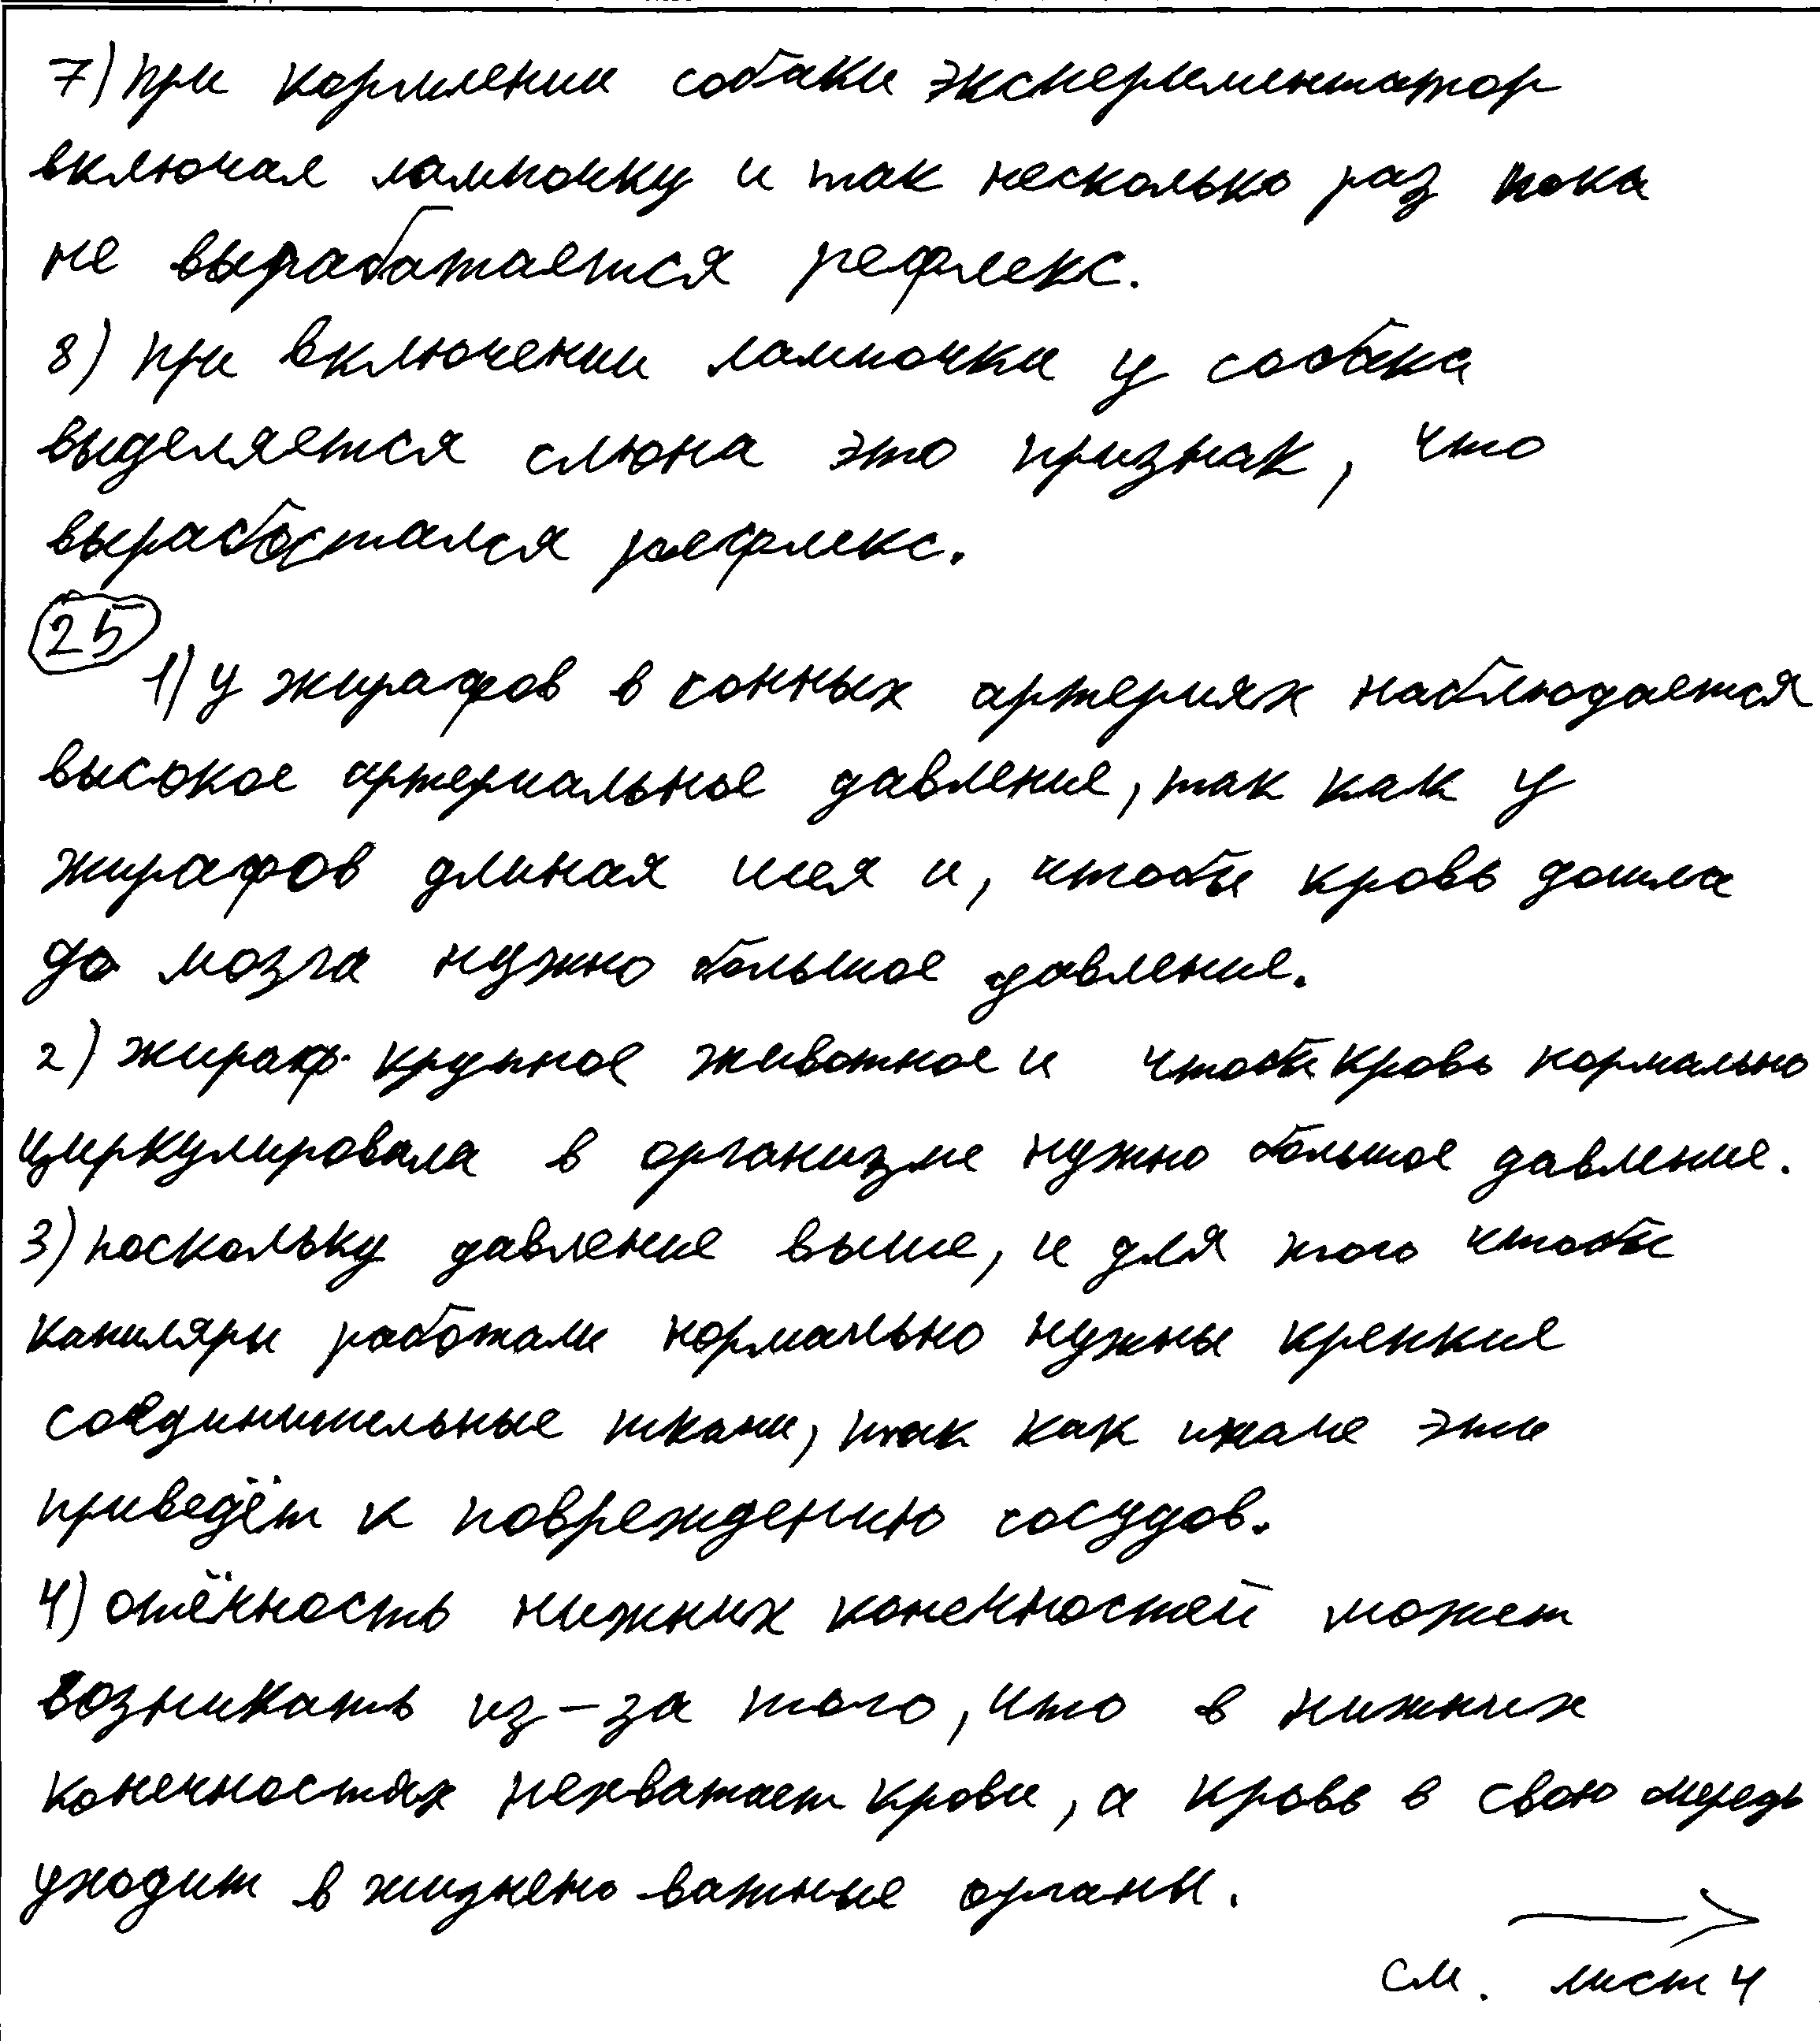 7) при кормлении собаки экспериментатор
включал лампочку и так несколько раз пока
не выработается рефлекс.
8) при включении лампочки у собаки
выделяется слюна это признак, что
выработался рефлекс.
25
1) у жирафов в сонных артериях наблюдается
высокое артериальное давление, так как у
жирафов длиная шея и, чтобы кровь дошла
до мозга нужно большое давление.
2) жираф крупное животное и чтобы кровь нормально
циркулировала в организме нужно большое давление.
3) поскольку давление выше, и для того чтобы
капиляры работали нормально нужны крепкие
соединительные ткани, так как иначе это
приведёт к повреждению сосудов.
4) отёчность нижних конечностей может
возникать из-за того, что в нижних
конечностях нехватает крови, а кровь в свою очередь
уходит в жизнено-важные органы.
см. лист 4